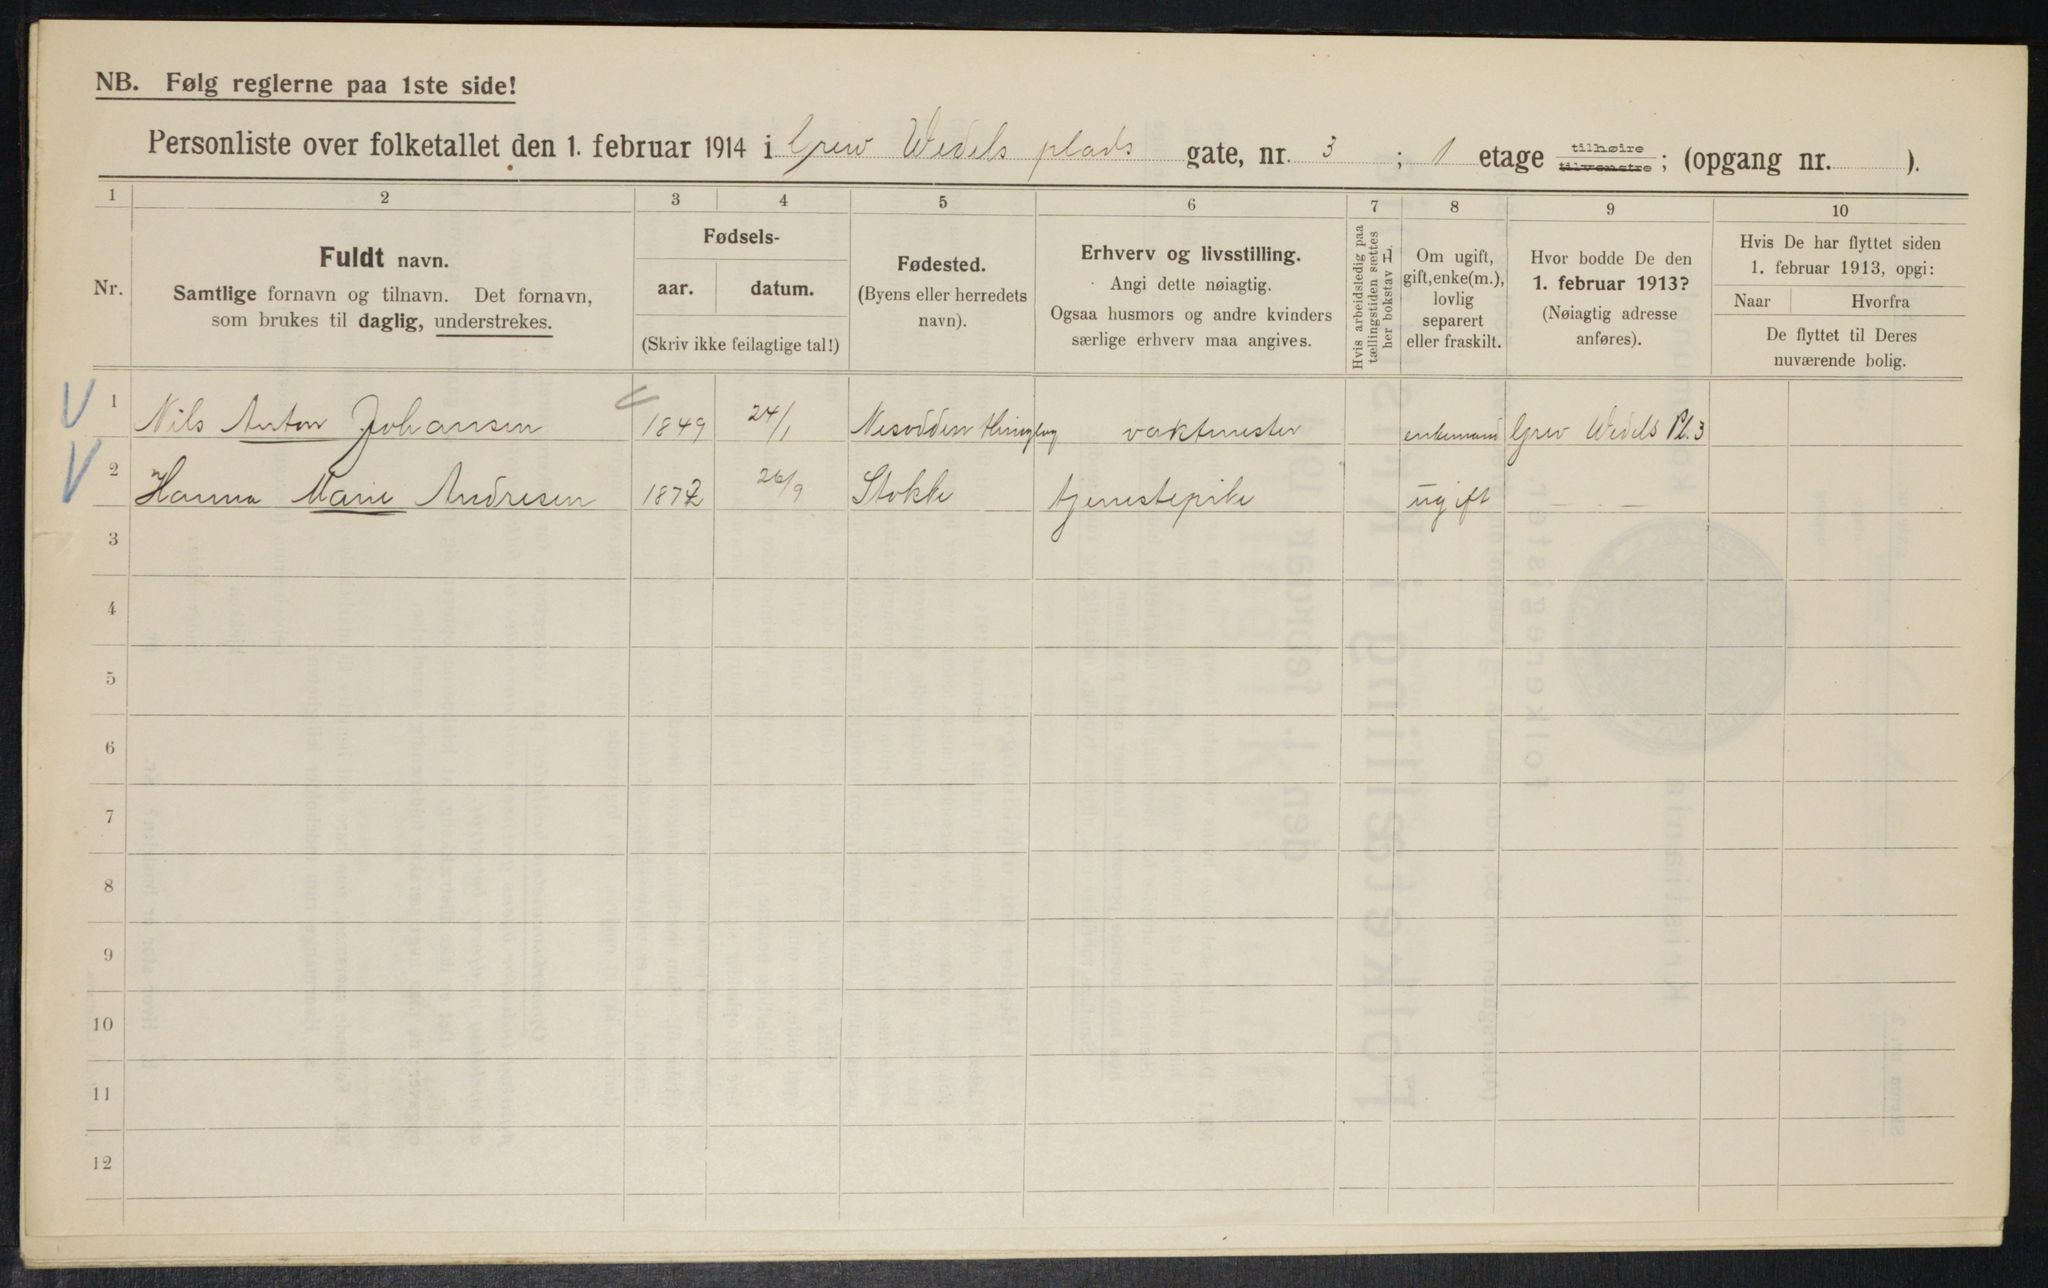 NB. Følg reglerne paa 1ste side!
Personliste over folketallet den 1. februar 1914 i Grew Wedels plads gate, nr. 3 ; 1 etage tilhøire tilvenstre ; (opgang nr. ).
1 2 3 4 5 6 7 8 9 10
Nr.
Fuldt navn.
Samtlige fornavn og tilnavn. Det fornavn,
som brukes til daglig, understrekes.
Fødsels-
aar. datum.
(Skriv ikke feilagtige tal!)
Fødested.
(Byens eller herredets
navn).
Erhverv og livsstilling.
Angi dette nøiagtig.
Ogsaa husmors og andre kvinders
særlige erhverv maa angives.
Hvis arbeidsledig paa
tællingstiden sættes
her bokstav L.
Om ugift,
gift, enke(m.),
lovlig
separert
eller fraskilt.
Hvor bodde De den
1. februar 1913?
(Nøiagtig adresse
anføres).
Hvis De har flyttet siden
1. februar 1913, opgi:
Naar Hvorfra
De flyttet til Deres
nuværende bolig.
1 Nils Anton Johansen 1849 24/1 Nesodden thinglag vaktmester enkemand Grev Wedels Pl. 3
2 Hanna Marie Andresen 1872 26/9 Stokke tjenestepike ugift — " —
3
4
5
6
7
8
9
10
11
12